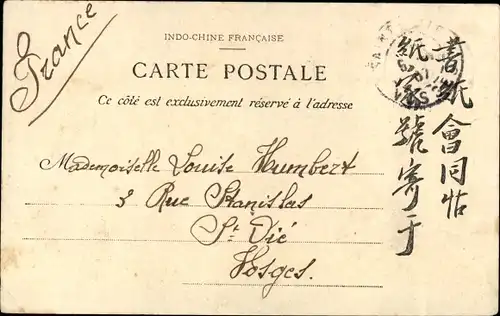 France
INDO-CHINE FRANÇAISE
CARTE POSTALE
Ce côté est exclusivement réservé à l'adresse
Mademoiselle Louise Humbert
3 Rue Stanislas
St Dié
Vosges.
著紙會同帖
紙家號寄于